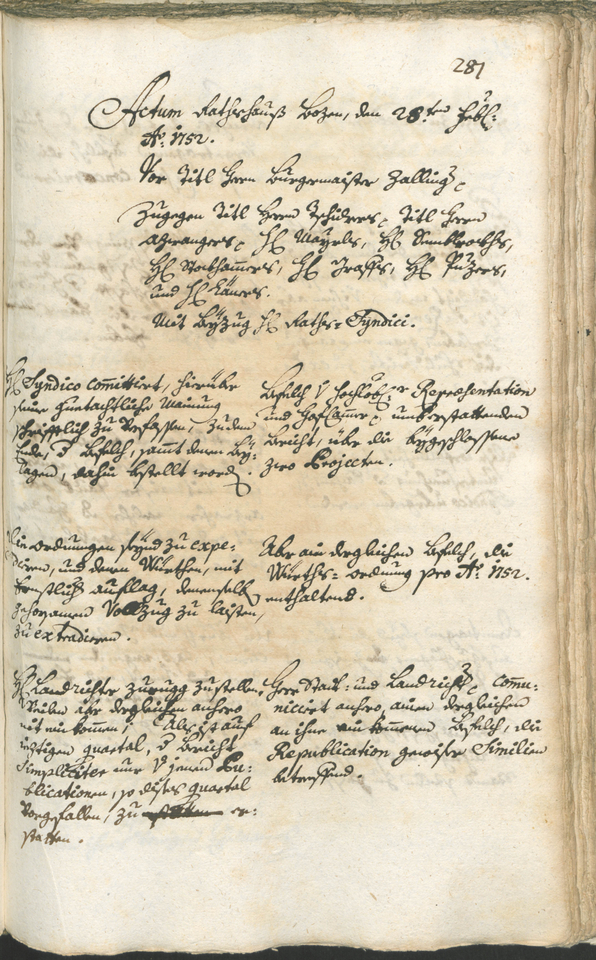 281
Actum Rathshauß Bozen, den 28ten Febr:
Ao: 1752.
Vor Titl Herrn Burgermaister Zalling
Zugegen Titl Herrn Tschiders, Titl Herrn
Hl Mayrls, Hl
Hl Stockhamers, Hl Graffs, Hl
und Hl
Mit Beyzug Hl Raths- Syndici.
Hl Syndico comittirt, hierüber
seine guetachtliche Mainung
schrifftlich zu verfassen, zu dem
Ende, d Befelch, sammt denen Bey-
lagen, dahin bestellt word.
Befelch v hochlob: Repraesentation
und Hofcammer, umb erstattenden
Bericht, über die beygeschlossene
zwo Projecten.
Die ordnungen seynd zu expe-
diren, und denen Würthen, mit
ernstlich auflag, denenselb
gehorsamen Vollzug zu laisten,
zu extradieren.
Aber ain dergleichen Befelch, die
Würths- ordnung pro Ao: 1752.
enthaltend.
Hl Landrichter zurugg zustellen,
weilen ihr dergleichen anhero
nit einkommen; Also ist auf
quartal, d Bericht,
simpliciter nur v jenen Pu-
blicationen, so dises quartal
vorgefallen, zu er-
statten.
Herr Statt- und Landricht commu-
nicirt anhero, ainen dergleichen
an ihne einkommenen Befelch, die
Republication gewiser
betreffend.